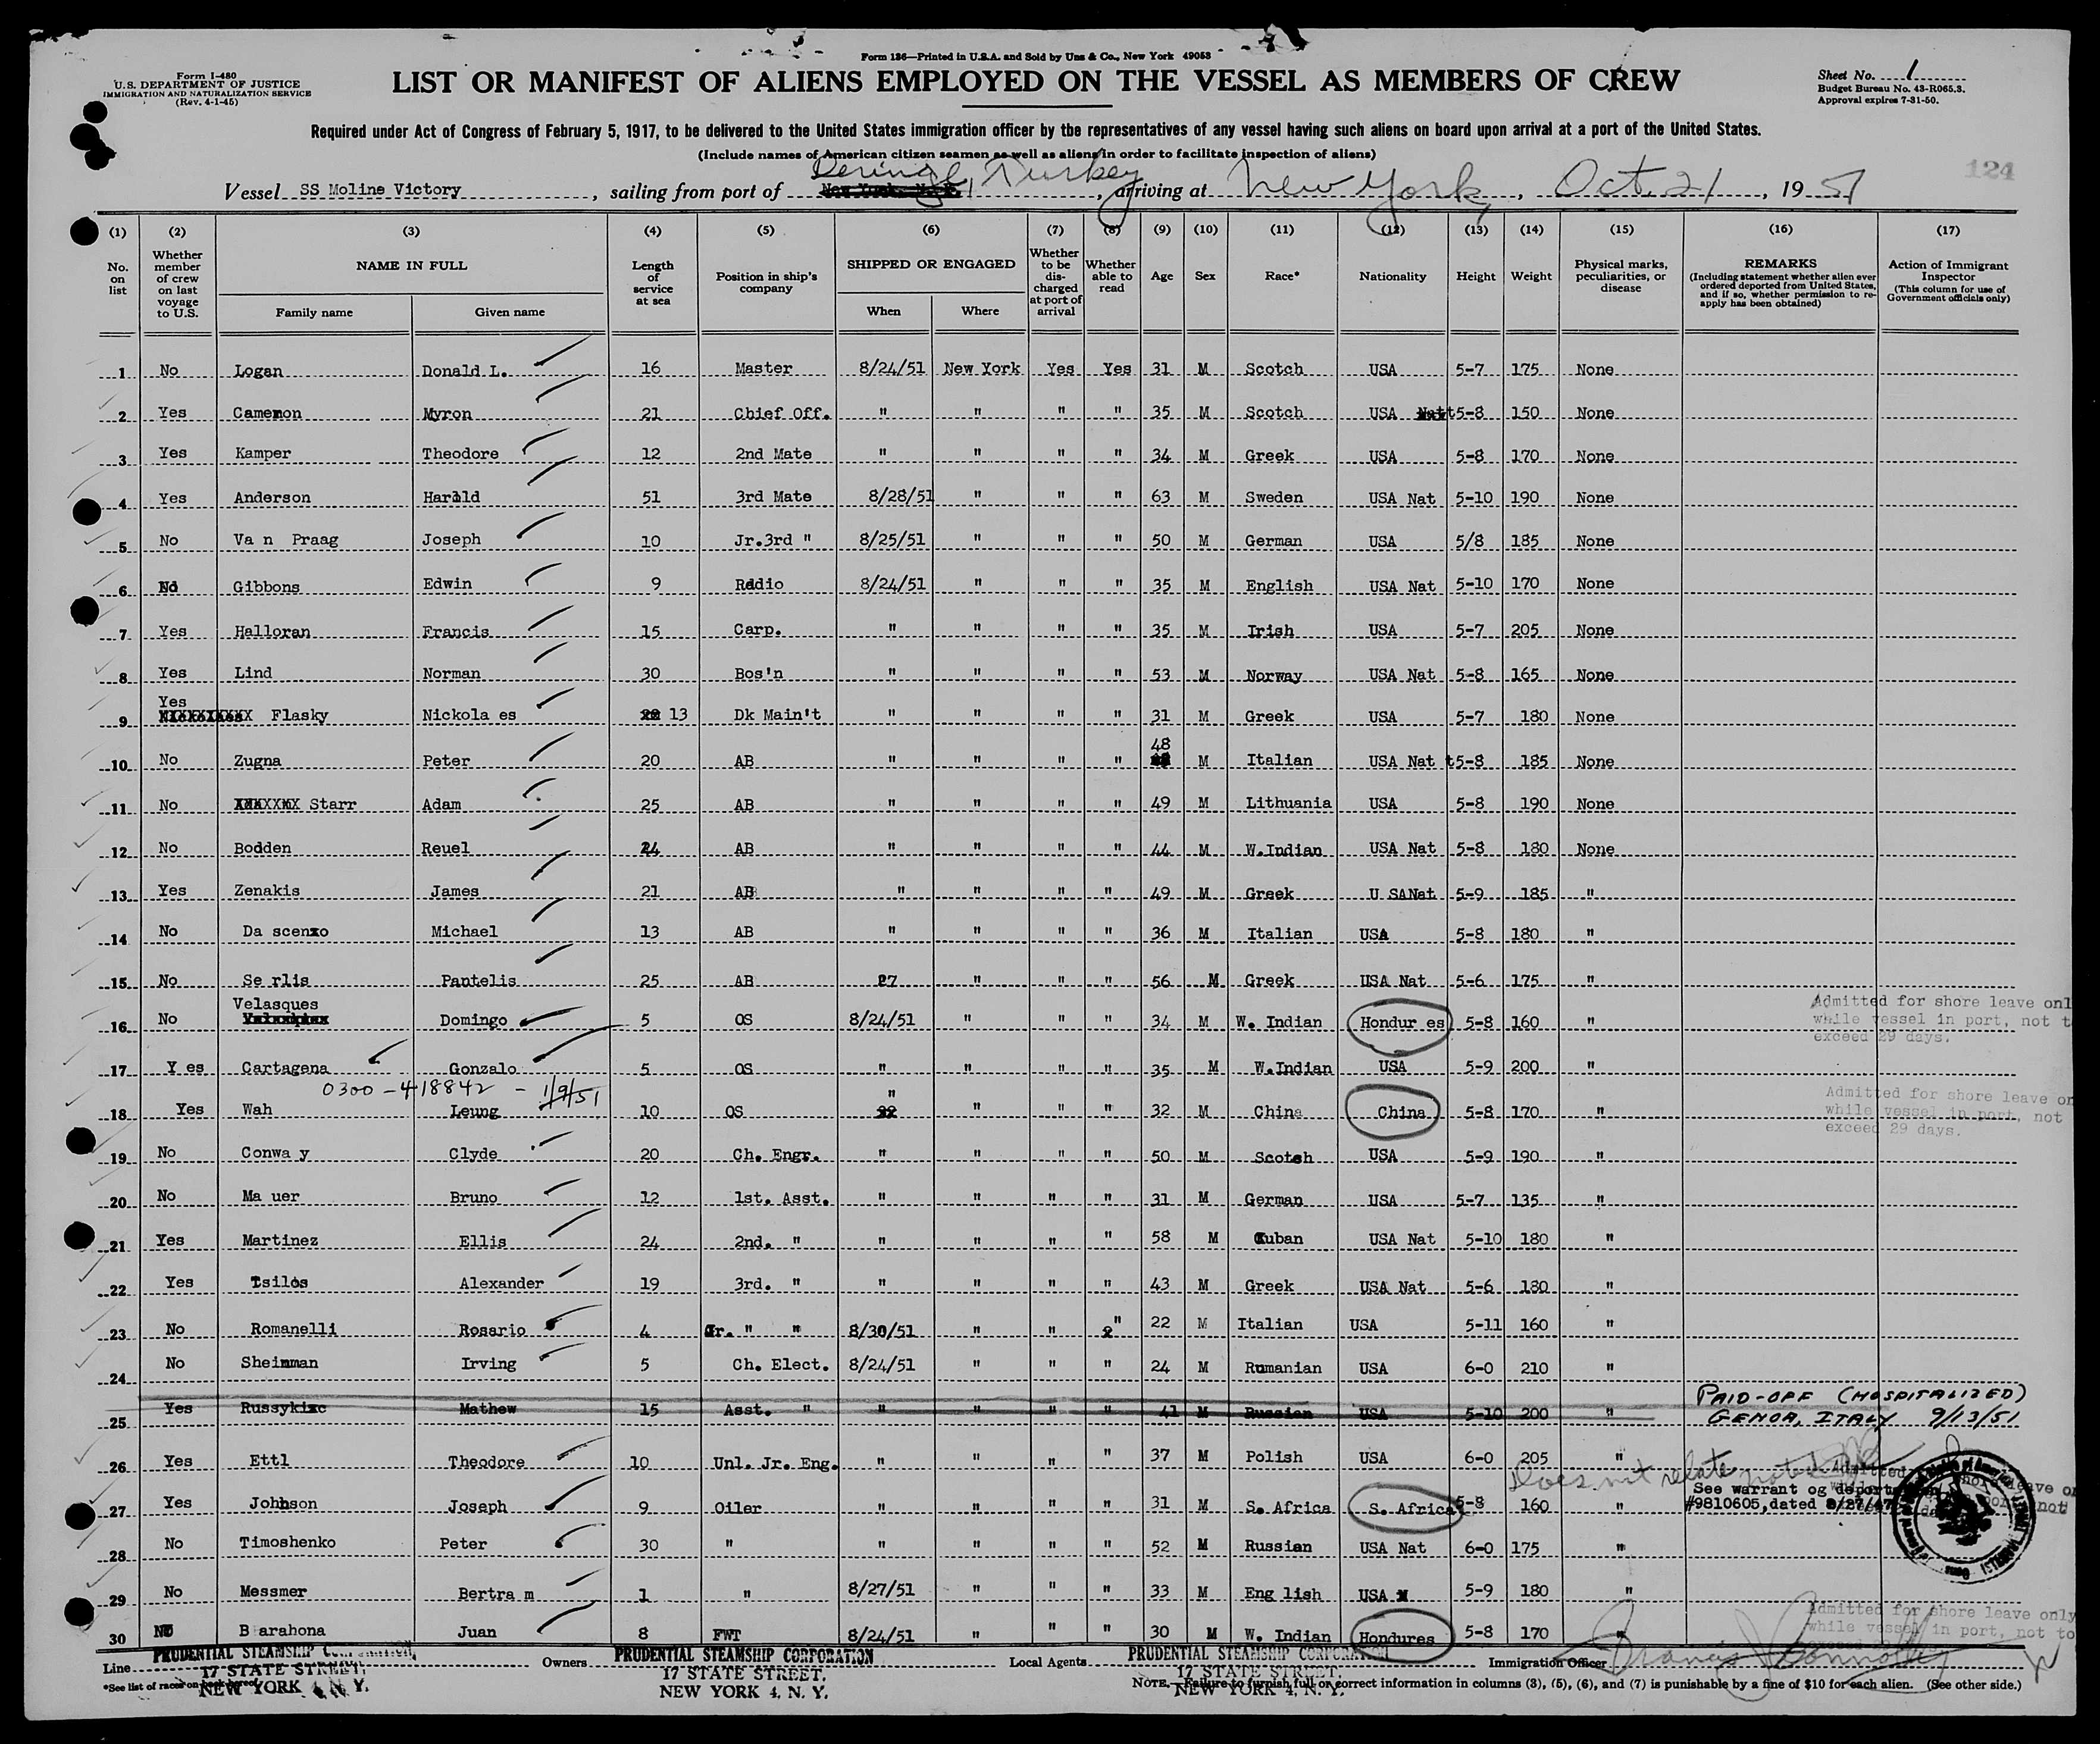 Form 136—Printed in U.S.A. and Sold by Unz & Co., New York 49053
Form I-480
U.S. DEPARTMENT OF JUSTICE
IMMIGRATION AND NATURALIZATION SERVICE
(Rev. 4-1-45)
LIST OR MANIFEST OF ALIENS EMPLOYED ON THE VESSEL AS MEMBERS OF CREW
Sheet No. 1
Budget Bureau No. 43-R065.3.
Approval expires 7-31-50.
Required under Act of Congress of February 5, 1917, to be delivered to the United States immigration officer by the representatives of any vessel having such aliens on board upon arrival at a port of the United States.
(Include names of American citizen seamen as well as aliens in order to facilitate inspection of aliens)
124
Vessel SS Moline Victory, sailing from port of Turkey, arriving at New York, Oct. 21, 1951
(1) (2) (3) (4) (5) (6) (7) (8) (9) (10) (11) (12) (13) (14) (15) (16) (17)
No. on list
Whether member of crew on last voyage to U.S.
NAME IN FULL
Family name
Given name
Length of service at sea
Position in ship's company
SHIPPED OR ENGAGED
When
Where
Whether to be discharged at port of arrival
Whether able to read
Age
Sex
Race*
Nationality
Height
Weight
Physical marks, peculiarities, or disease
REMARKS
(Including statement whether alien ever ordered deported from United States, and if so, whether permission to reapply has been obtained)
Action of Immigrant Inspector
(This column for use of Government officials only)
1 No Logan Donald L. 16 Master 8/24/51 New York Yes Yes 31 M Scotch USA 5-7 175 None
2 Yes Cameron Myron 21 Chief Off. " " " " 35 M Scotch USA 5-8 150 None
3 Yes Kamper Theodore 12 2nd Mate " " " " 34 M Greek USA 5-8 170 None
4 Yes Anderson Harold 51 3rd Mate 8/28/51 " " " 63 M Sweden USA Nat 5-10 190 None
5 No Va n Praag Joseph 10 Jr.3rd " 8/25/51 " " " 50 M German USA 5/8 185 None
6 No Gibbons Edwin 9 Radio 8/24/51 " " " 35 M English USA Nat 5-10 170 None
7 Yes Halloran Francis 15 Carp. " " " " 35 M Irish USA 5-7 205 None
8 Yes Lind Norman 30 Bos'n " " " " 53 M Norway USA Nat 5-8 165 None
9 Yes Flasky Nickola es 13 Dk Main't " " " " 31 M Greek USA 5-7 180 None
10 No Zugna Peter 20 AB " " " " 48 M Italian USA Nat 5-8 185 None
11 No Starr Adam 25 AB " " " " 49 M Lithuania USA 5-8 190 None
12 No Bodden Reuel 24 AB " " " " 44 M W.Indian USA Nat 5-8 180 None
13 Yes Zenakis James 21 AB " " " " 49 M Greek U SANat 5-9 185 "
14 No Da scenzo Michael 13 AB " " " " 36 M Italian USA 5-8 180 "
15 No Se rlis Pantelis 25 AB 27 " " " 56 M Greek USA Nat 5-6 175 "
16 No Velasques Domingo 5 OS 8/24/51 " " " 34 M W. Indian Hondur es 5-8 160 "
Admitted for shore leave onl
while vessel in port, not t
exceed 29 days.
17 Y es Cartagena Gonzalo 5 OS " " " " 35 M W.Indian USA 5-9 200 "
0300-418842 - 1/9/51
18 Yes Wah Leung 10 OS " " " " 32 M China China 5-8 170 "
Admitted for shore leave on
while vessel in port, not
exceed 29 days.
19 No Conwa y Clyde 20 Ch. Engr. " " " " 50 M Scotch USA 5-9 190 "
20 No Ma uer Bruno 12 1st. Asst. " " " " 31 M German USA 5-7 135 "
21 Yes Martinez Ellis 24 2nd. " " " " " 58 M Cuban USA Nat 5-10 180 "
22 Yes Tsilos Alexander 19 3rd. " " " " " 43 M Greek USA Nat 5-6 180 "
23 No Romanelli Rosario 4 Jr. " " 8/30/51 " " " 22 M Italian USA 5-11 160 "
24 No Sheinman Irving 5 Ch. Elect. 8/24/51 " " " 24 M Rumanian USA 6-0 210 "
25 Yes Mathew 15 Asst. " " " " " 41 M Russian USA 5-10 200 "
PAID-OFF (HOSPITALIZED)
GENOA, ITALY 9/13/51
26 Yes Ettl Theodore 10 Unl. Jr. Eng. " " " " 37 M Polish USA 6-0 205 "
Does not relate
27 Yes Johnson Joseph 9 Oiler " " " " 31 M S. Africa S. Africa 5-8 160 "
See warrant og deport
#9810605, dated 8/27/47
28 No Timoshenko Peter 30 " " " " " 52 M Russian USA Nat 6-0 175 "
29 No Messmer Bertra m 1 " 8/27/51 " " " 33 M Eng lish USA 5-9 180 "
30 No B arahona Juan 8 FWT 8/24/51 " " " 30 M W. Indian Hondures 5-8 170 "
Admitted for shore leave only
while vessel in port, not to
Line PRUDENTIAL STEAMSHIP CORPORATION, 17 STATE STREET, NEW YORK 4, N. Y.
Owners PRUDENTIAL STEAMSHIP CORPORATION 17 STATE STREET, NEW YORK 4, N. Y.
Local Agents PRUDENTIAL STEAMSHIP CORPORATION 17 STATE STREET, NEW YORK 4, N. Y.
Immigration Officer Francis J Connolly
*See list of races on back hereof.
NOTE.—Failure to furnish full or correct information in columns (3), (5), (6), and (7) is punishable by a fine of $10 for each alien. (See other side.)